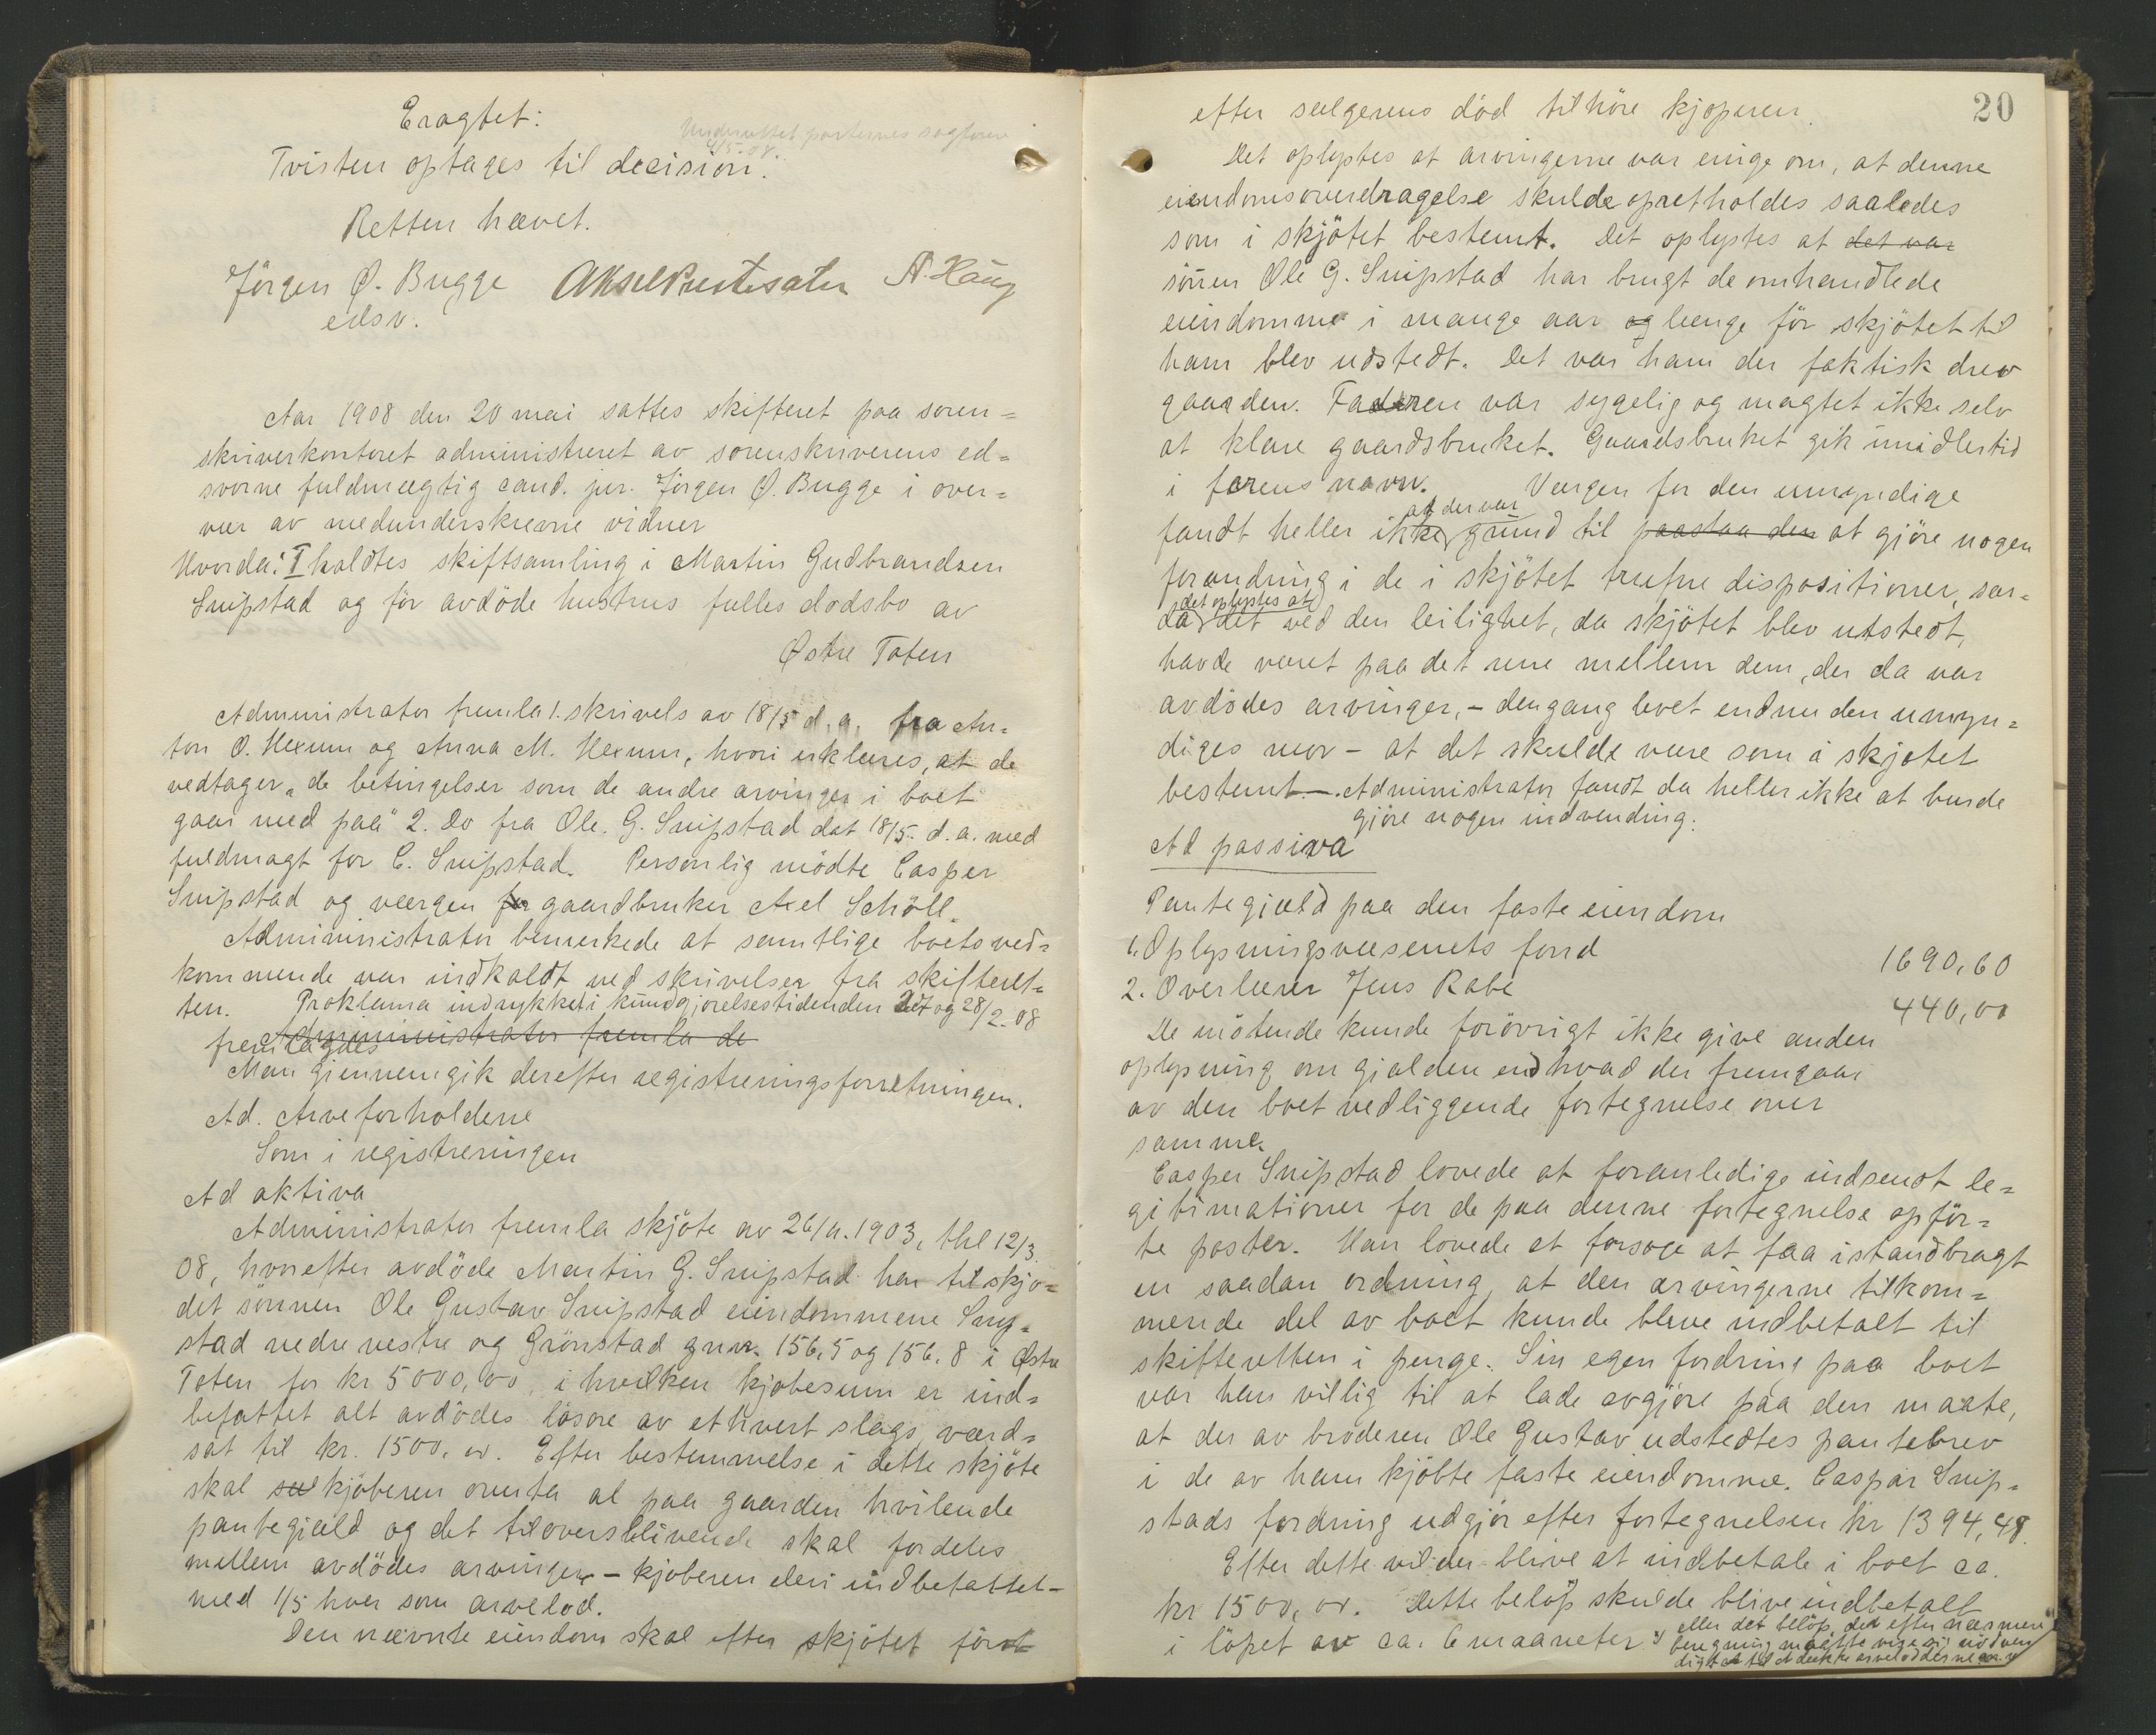 Eragtet:
Underrettet parternes sagførere
4/5-08.
Tvisten optages til decision.
Retten hævet.
Jörgen Ø. Bugge
edsv.
A. Haug
Aar 1908 den 20 mai sattes skifteret paa soren=
skriverkontoret administreret av sorenskriverens ed=
svorne fuldmægtig cand. jur. Jörgen Ø. Bugge i over=
vær av medunderskrevne vidner
Hvorda: I holdtes skiftsamling i Martin Gudbrandsen
Snipstad og för avdöde hustrus fælles dodsbo av
Østre Toten
Administrator fremla 1. skrivels av 18/5 d. a. fra An=
ton O. Hexum og Anna M. Hexum, hvori erklæres, at de
vedtager „de betingelser som de andre arvinger i boet
gaar med paa" 2. Do fra Ole. G. Snipstad dat 18/5. d. a. med
fuldmagt for C. Snipstad. Personlig mödte Casper
Snipstad og værgen for gaardbruker Axel Schöll.
Administrator bemerkede at samtlige boets ved=
kommende var indkaldt ved skrivelser fra skifteret=
ten. Proklama indrykket i kundgjörelsestidenden 21de og 28/2. 08
fremlagdes Administrator fremla de
Man gjennemgik derefter registreringsforretningen.
Ad. Arveforholdene
Som i registreringen
Ad aktiva
Administrator fremla skjöte av 26/11. 1903, thl 12/3.
08, hvorefter avdöde Martin G. Snipstad har tilskjö=
det sönnen Ole Gustav Snipstad eiendommene Snip=
stad nedre vestre og Grönstad gnr. 156,5 og 156. 8 i Østre
Toten for kr 5000,00, i hvilken kjöbesum er ind=
befattet alt avdödes lösöre av ethvert slags, værd=
sat til kr. 1500. 00. Efter bestemmelse i dette skjöte
skal sæl kjöberen overta al paa gaarden hvilende
pantegjæld og det tiloversblivende skal fordeles
mellem avdödes arvinger – kjöberen deri indbefattet –
med 1/5 hver som arvelod.
Den nævnte eiendom skal efter skjötet först
20
efter sælgerens död tilhöre kjoperen.
Det oplystes at arvingerne var enige om, at denne
eiendomsoverdragelse skulde opretholdes saaledes
som i skjötet bestemt. Det oplystes at det var
sönnen Ole G. Snipstad har brugt de omhandlede
eiendomme i mange aar og længe för skjötet til
ham blev udstedt. Det var ham der faktisk drev
gaarden. Faderen var sygelig og magtet ikke selv
at klare gaardsbruket. Gaardsbruket gik imidlertid
i farens navn. Værgen for den umyndige
at der var
fandt heller ikke grund til paastaa den at gjöre nogen
forandring i de i skjötet trufne dispositioner, sær=
det oplystes at
da det ved den leilighet, da skjötet blev utstedt,
havde været paa det rene mellem dem, der da var
avdödes arvinger, – dengang levet endnu den umyn=
diges mor – at det skulde være som i skjötet
bestemt –. Administrator fandt da heller ikke at burde
gjöre nogen indvending.
Ad passiva
Pantegjæld paa den faste eiendom
1. Oplysningsvæsenets fond 1690,60
2. Overlærer Jens Rabe 440,00
De mötende kunde forövrigt ikke give anden
oplysning om gjælden end hvad der fremgaar
av den boet vedliggende fortegnelse over
samme.
Casper Snipstad lovede at foranledige indsendt le=
gitimationer for de paa denne fortegnelse opför=
te poster. Han lovede at forsöge at faa istandbragt
en saadan ordning, at den arvingerne tilkom=
mende del av boet kunde bleve indbetalt til
skifteretten i penge. Sin egen fordring paa boet
var han villig til at lade avgjöre paa den maate,
at der av broderen Ole Gustav udstedtes pantebrev
i de av ham kjöbte faste eiendomme. Caspar Snip=
stads fordring udgjör efter fortegnelsen kr 1394,48.
Efter dette vil der blive at indbetale i boet ca.
kr 1500,00. Dette belöp skulde blive indbetalt
i löpet av ca. 6 maaneter.
eller det belöp, der efter nærmere
beregning maatte vise sig nödven
digt til at dække arveloddene